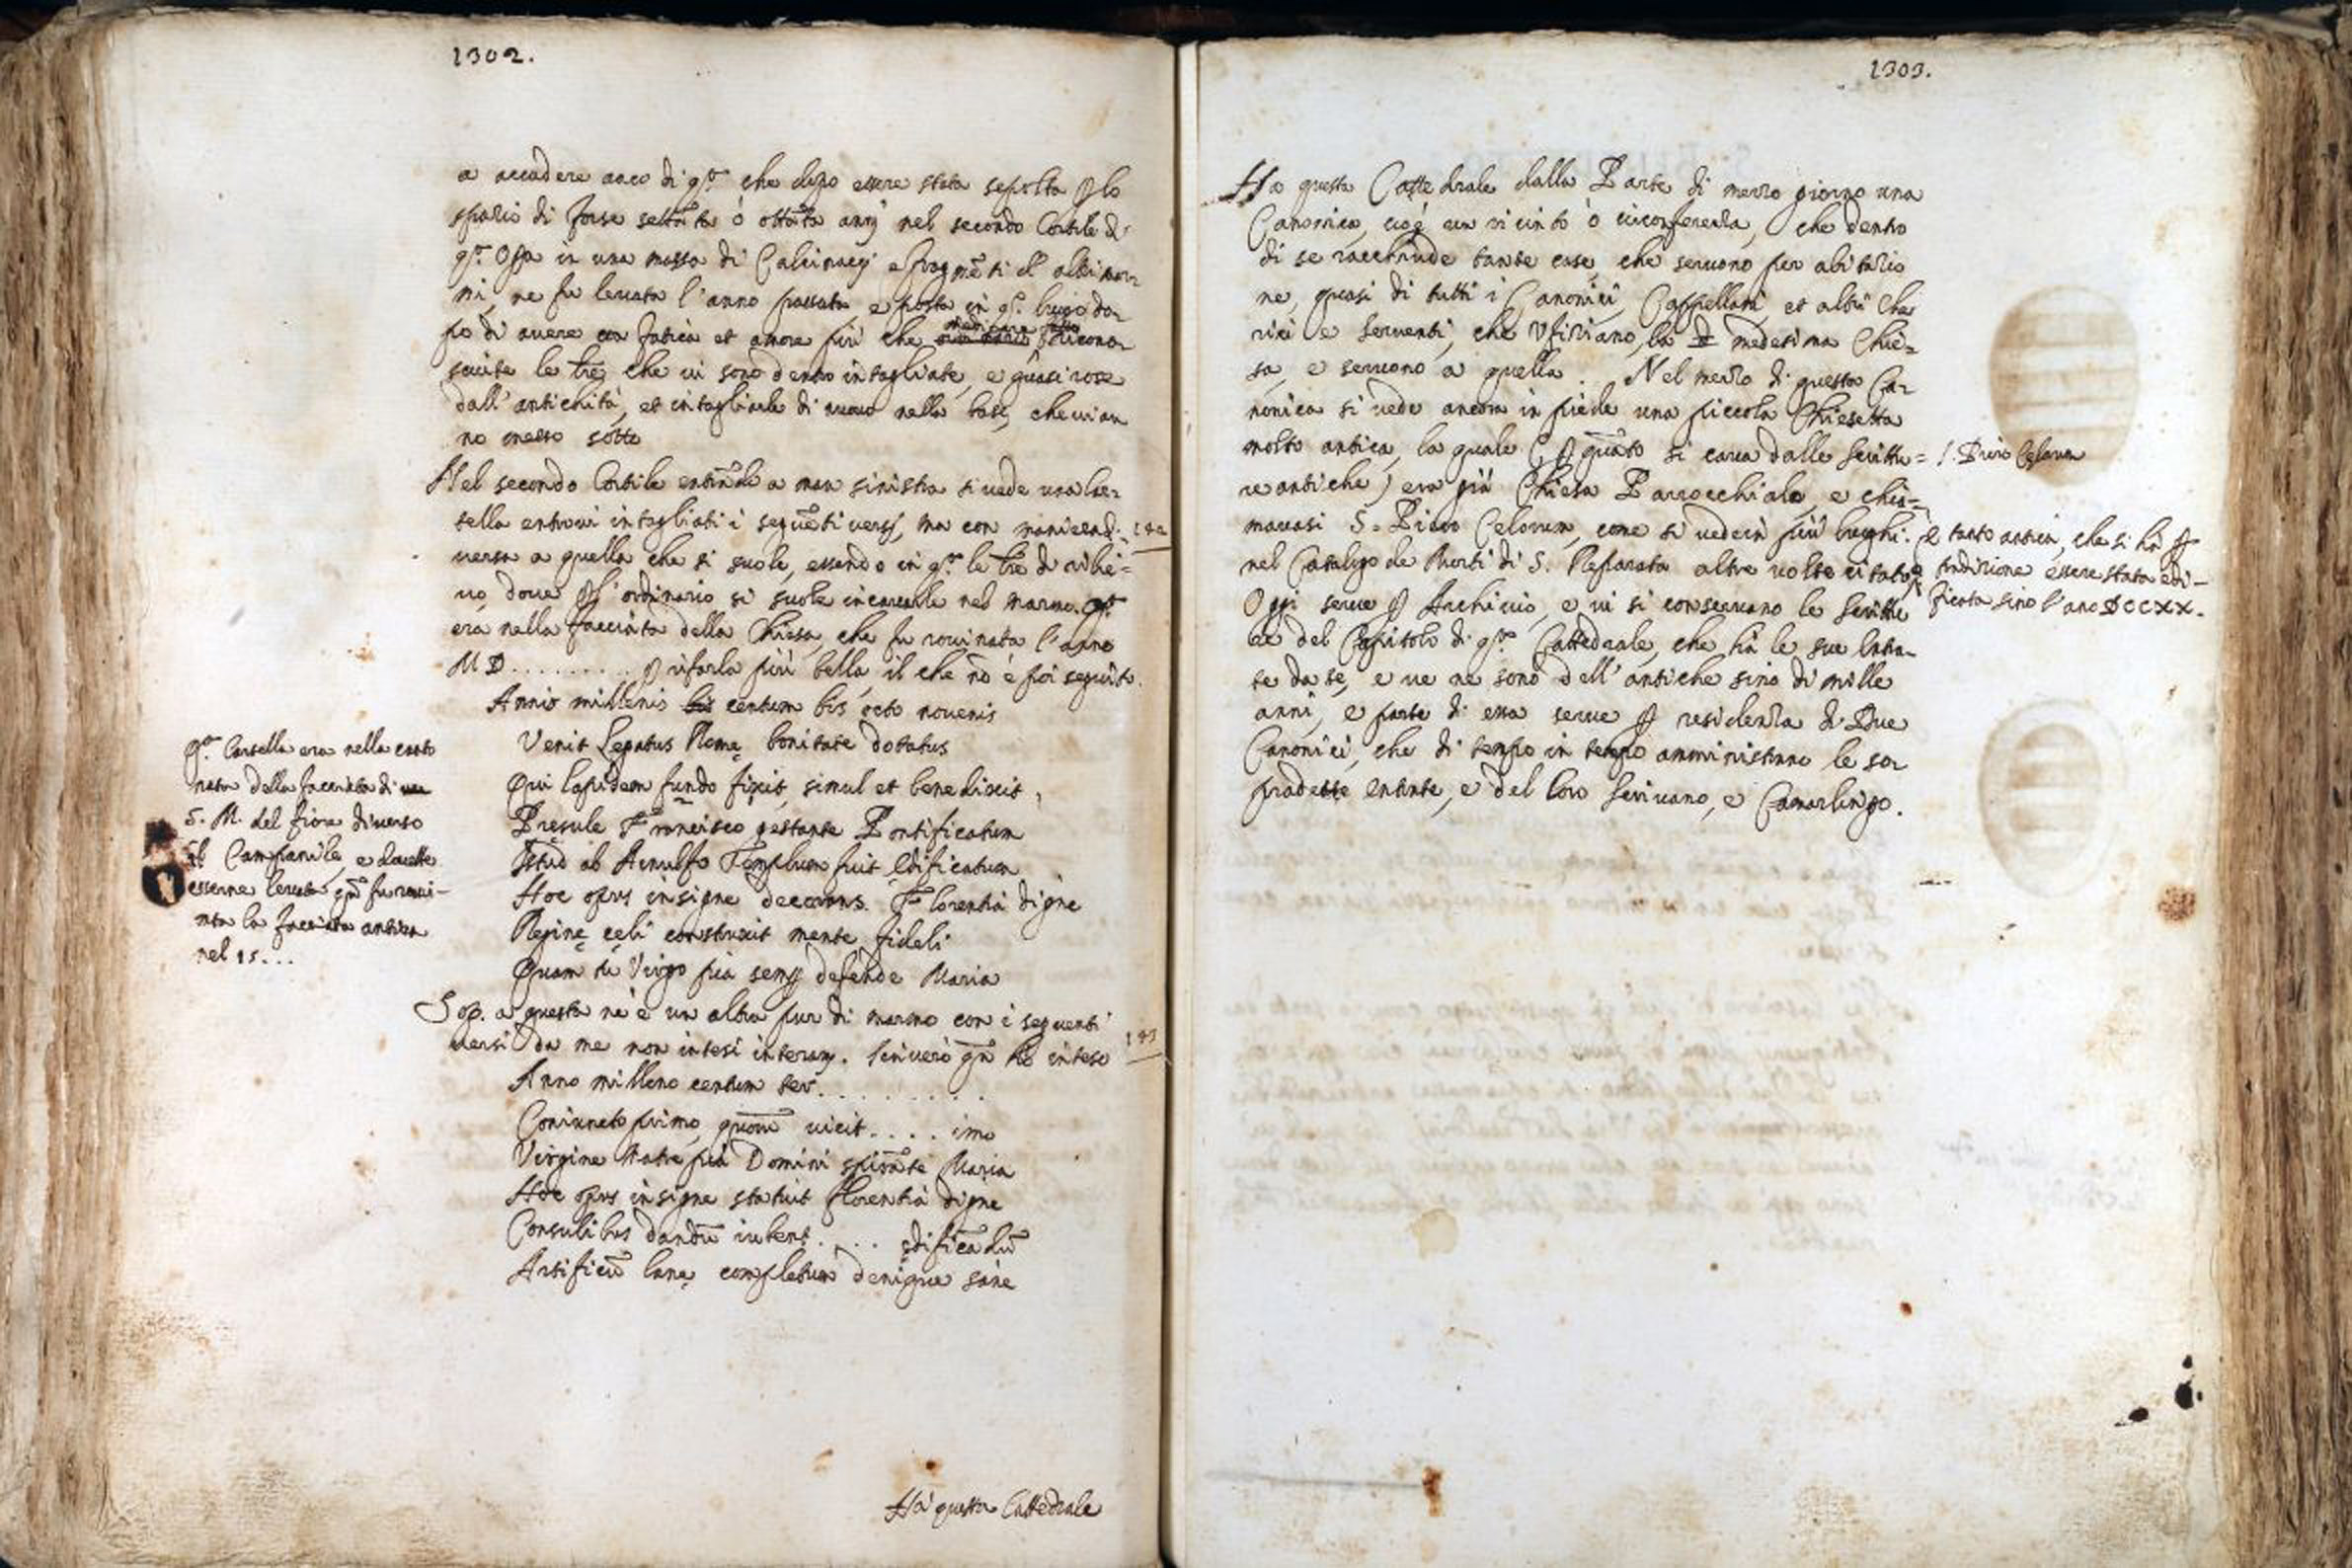 1302.
a accadere anco di q.ta che dopo essere stata sepolta p lo
spazio di forse settãta ò ottãta anni nel secondo Cortile di
q.ta Opa in una massa di Calcinacci e fragmẽti d' altri mar-
mi, ne fu levata l'anno passato, e posta in q.to luogo do-
po di avere con fatica et amore più che ricono-
sciute le lre, che vi sono dentro intagliate, e quasi rose
dall'antichità, et intagliarle di nuovo nella base, che vi an
no messo sotto
Nel secondo Cortile entrãdo a man sinistra si vede una Car-
tella entrovi intagliati i seguẽti versi, ma con maniera di-
versa a quella che si suole, essendo in q.ta le lre di rilie=
vo dove p l'ordinario si suole incavarle nel marmo. q.ta
era nella facciata della Chiesa, che fu rovinata l'anno
M D . . . . . . . . . p rifarla più bella, il che nõ è poi seguito.
Annis millenis bis centum bis octo novenis
Venit Legatus Romę bonitate dotatus
Qui lapidem fundo fixit, simul et benedixit,
Pręsule Francisco gestante Pontificatum
Istud ab Arnulfo Templum fuit ędificatum
Hoc opus insigne decorans Florentia digne
Reginę cęli construxit mente fideli
Quam tu Virgo pia semp defende Maria
q.ta Cartella era nella canto
nata della facciata di
S. M. del fiore diverso
il Campanile, e dovette
esserne levata qñ fu rovi-
nata la facciata antica
nel 15...
Sop. a questa ne è un altra pur di marmo con i seguenti
versi da me non intesi interam. Scriverò qñ hò inteso
143
Anno milleno centum ter. . . . . . . . .
Coniuncto primo, quom vicit. . . . imo
Virgine Matre pia Domini spirãte Maria
Hoc opus insigne statuit Florentia digne
Consulibus dandũ iubens . . . . ędificandũ
Artificũ lanę completum denique sane
Hà questa Cattedrale
1303.
Ha questa Cattedrale dalla Parte di mezzo giorno una
Canonica, cioè un vicinto ò circonferenza, che dentro
di se racchiude tante case, che servono per abitazio
ne, quasi di tutti i Canonici, Cappellani, et altri Che
rici e serventi, che Ufiziano, la medesima Chie=
sa, e servono a quella. Nel mezzo di questa Ca-
nonica si vede ancora in piede una piccola Chiesetta
molto antica, la quale (p quãto si cava dalle scrittu=
re antiche) era già Chiesa Parrocchiale, e chia=
mavasi S. Piero Celorum, come si vede in più luoghi
nel Catalogo de Morti di S. Reparata altre volte citato
Oggi serve p Archivio, e vi si conservano le scrittu
re del Capitolo di q.ta Cattedrale, che hà le sue Entra-
te da se, e ve ne sono dell'antiche sino di mille
anni, e parte di essa serve p residenza di Due
Canonici, che di tempo in tempo amministrano le sop
pradette entrate, e del loro Scrivano, e Camarlingo.
S. Piero Celorum
è tanto antica, che si hà p
tradizione essere stata edi-
ficata sino l'ano DCCXX.